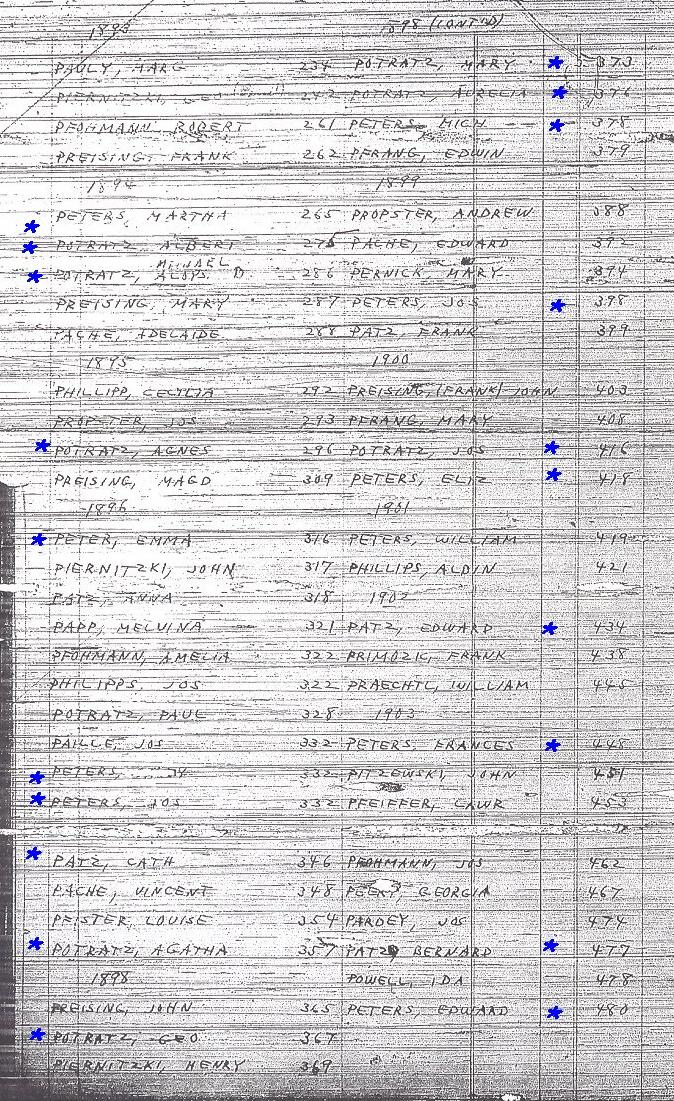 1893
PAULY, MARG 234
PIERNITZKI, GEO 242
PFOHMANN ROBERT 261
PREISING, FRANK 262
1894
PETERS, MARTHA 265
POTRATZ ALBERT 275
MICHAEL
POTRATZ, ALOYS. B 286
PREISING, MARY 287
PACHE, ADELAIDE 288
1895
PHILLIPP, CECYLIA 292
PROPSTER, JOS 293
POTRATZ, AGNES 296
PREISING, MAGD 309
1896
PETER, EMMA 316
PIERNITZKI, JOHN 317
PATZ, ANNA 318
PAPP, MELVINA 321
PFOHMANN, AMELIA 322
PHILIPPS, JOS 322
POTRATZ, PAUL 328
PAILLE, JOS 332
PETERS, 332
PETERS, JOS 332
PATZ, CATH 346
PACHE, VINCENT 348
PFISTER, LOUISE 354
POTRATZ, AGATHA 357
1898
PREISING, JOHN 365
POTRATZ, GEO 367
PIERNITZKI, HENRY 369
1898 (CONT'D)
POTRATZ, MARY 373
POTRATZ, AURELIA 376
PETERS, MICH 378
PFRANG, EDWIN 379
1899
PROPSTER, ANDREW 388
PACHE, EDWARD 392
PERNICK, MARY 394
PETERS, JOS 398
PATZ, FRANK 399
1900
PREISING, (FRANK) JOHN 403
PFRANG, MARY 408
POTRATZ, JOS 416
PETERS, ELIZ 418
1901
PETERS, WILLIAM 419
PHILLIPS, ALDIN 421
1902
PATZ, EDWARD 434
PRIMOZIC, FRANK 438
PRAECHTL, WILLIAM 445
1903
PETERS, FRANCES 448
PITZEWSKI, JOHN 451
PFEIFFER, LAWR 453
PFOHMANN, JOS 462
GEORGIA 467
PARDEY, JOS 474
PATZ, BERNARD 477
POWELL, IDA 478
PETERS, EDWARD 480